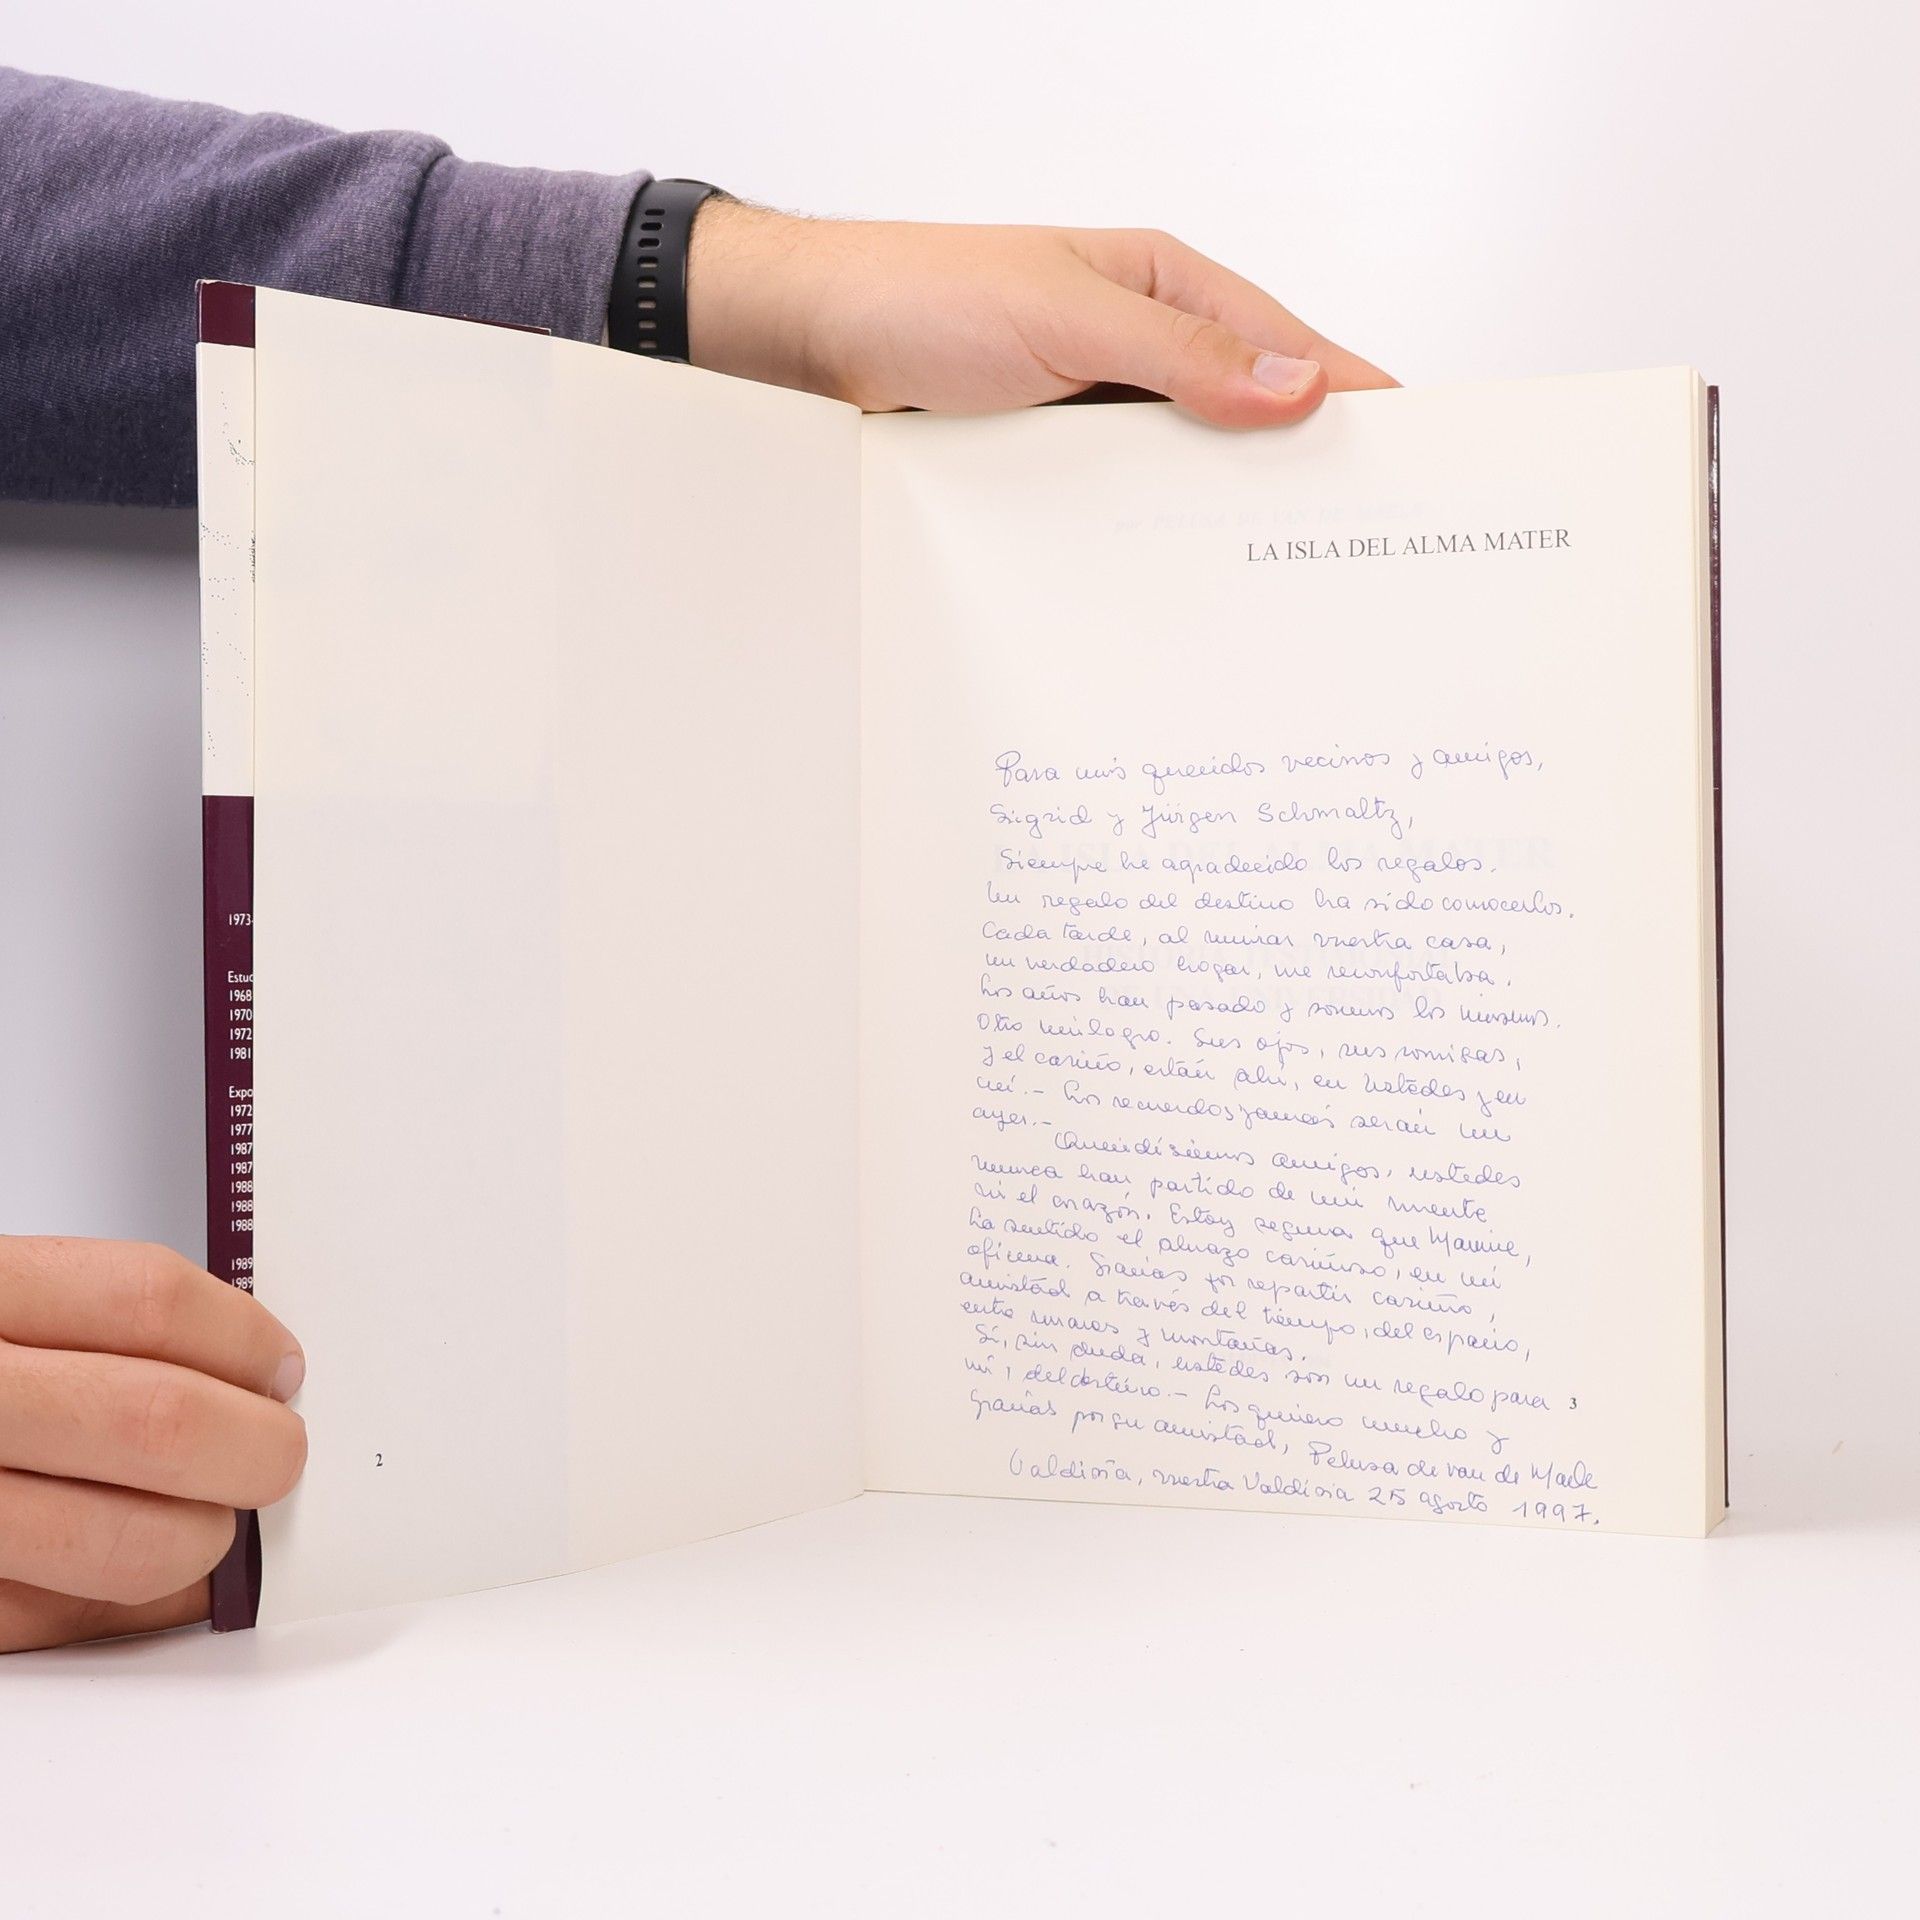 1973
Estud
1968
1970
1972
1981
Expo
1972
1977
1987
1987
1988
1988
1988
1989
1989
2
por PELUSA DE VAN DE MAELE
LA ISLA DEL ALMA MATER
Para mis queridos vecinos y amigos,
Sigrid y Jürgen Schmaltz,
Siempre he agradecido los regalos.
Un regalo del destino ha sido conocerlos.
Cada tarde, al mirar vuestra casa,
un verdadero hogar, me reconfortaba.
Los años han pasado y somos los mismos.
Otro milagro. Sus ojos, sus sonrisas,
y el cariño, están ahí, en Ustedes y en
mí.- Los recuerdos jamás serán un
ayer.-
Queridísimos amigos, ustedes
nunca han partido de mi mente
ni el corazón. Estoy segura que
ha sentido el abrazo cariñoso, en mi
oficina. Gracias por repartir cariño,
amistad a través del tiempo, del espacio,
entre mares y montañas.
Sí, sin duda, ustedes son un regalo para
mí, del destino.- Los quiero mucho y
gracias por su amistad, Pelusa de van de Maele
Valdivia, nuestra Valdivia 25 agosto 1997.
3